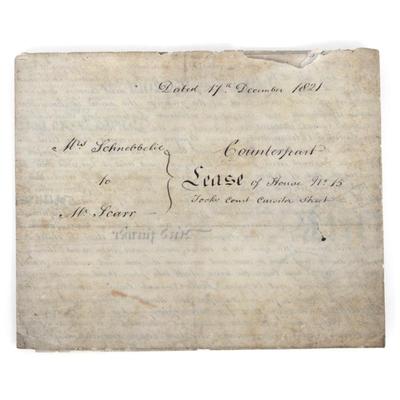 Dated 17th December 1821
Mrs Schnebbelie
to
Mr Scarr
Counterpart
Lease of House No 15
Tooks Court Cursitor Street